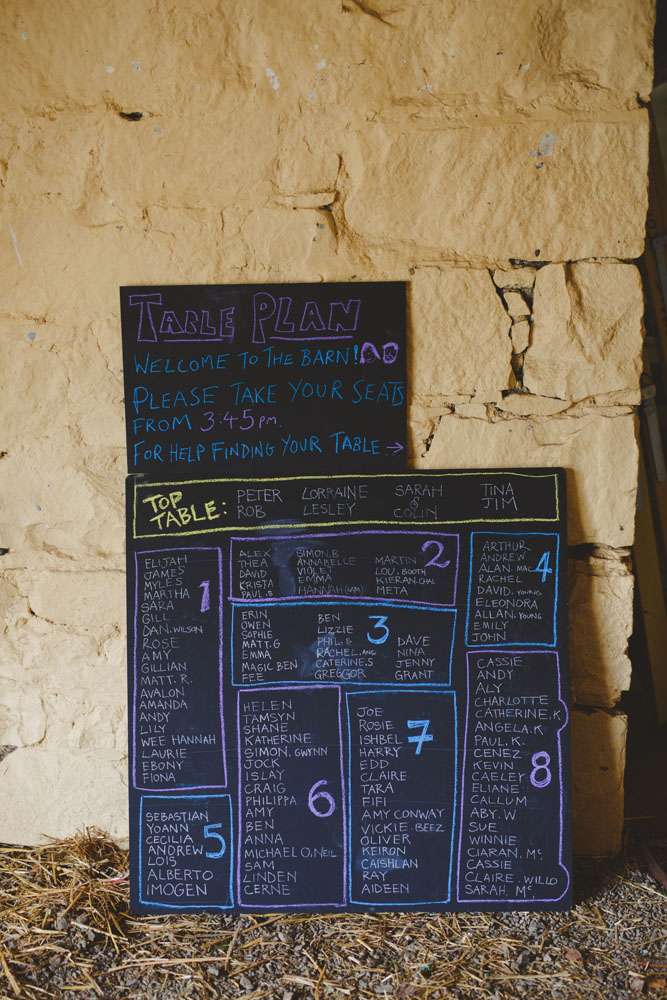 TABLE PLAN
WELCOME TO THE BARN!
PLEASE TAKE YOUR SEATS
FROM 3:45 PM.
FOR HELP FINDING YOUR TABLE →
TOP TABLE:
PETER LORRAINE SARAH TINA
ROB LESLEY & COLIN JIM
1
ELIJAH
JAMES
MYLES
MARTHA
SARA
GILL
DAN.WILSON
ROSE
AMY
GILLIAN
MATT. R.
AVALON
AMANDA
ANDY
LILY
WEE HANNAH
LAURIE
EBONY
FIONA
2
ALEX
THEA
DAVID
KRISTA
PAUL.S
SIMON.B
ANNABELLE
VIOLET
EMMA
HANNAH
MARTIN
LOU.BOOTH
KIERAN
META
3
ERIN
OWEN
SOPHIE
MATT.G
EMMA
MAGIC BEN
FEE
BEN
LIZZIE
PHIL.E
RACHEL.
CATERINE.S
GREGGOR
DAVE
NINA
JENNY
GRANT
4
ARTHUR
ANDREW
ALAN.MAC
RACHEL
DAVID.YOUNG
ELEONORA
ALLAN.YOUNG
EMILY
JOHN
5
SEBASTIAN
YOANN
CECILIA
ANDREW
LOIS
ALBERTO
IMOGEN
6
HELEN
TAMSYN
SHANE
KATHERINE
SIMON.GWYNN
JOCK
ISLAY
CRAIG
PHILIPPA
AMY
BEN
ANNA
MICHAEL O.NEIL
SAM
LINDEN
CERNE
7
JOE
ROSIE
ISHBEL
HARRY
EDD
CLAIRE
TARA
FIFI
AMY CONWAY
VICKIE BEEZ
OLIVER
KEIRON
CAISHLAN
RAY
AIDEEN
8
CASSIE
ANDY
ALY
CHARLOTTE
CATHERINE.K
ANGELA.K
PAUL.K.
CENEZ
KEVIN
CAELEY
ELIANE
CALLUM
ABY.W
SUE
WINNIE
CIARAN. Mc.
CASSIE
CLAIRE.WILLO
SARAH. Mc